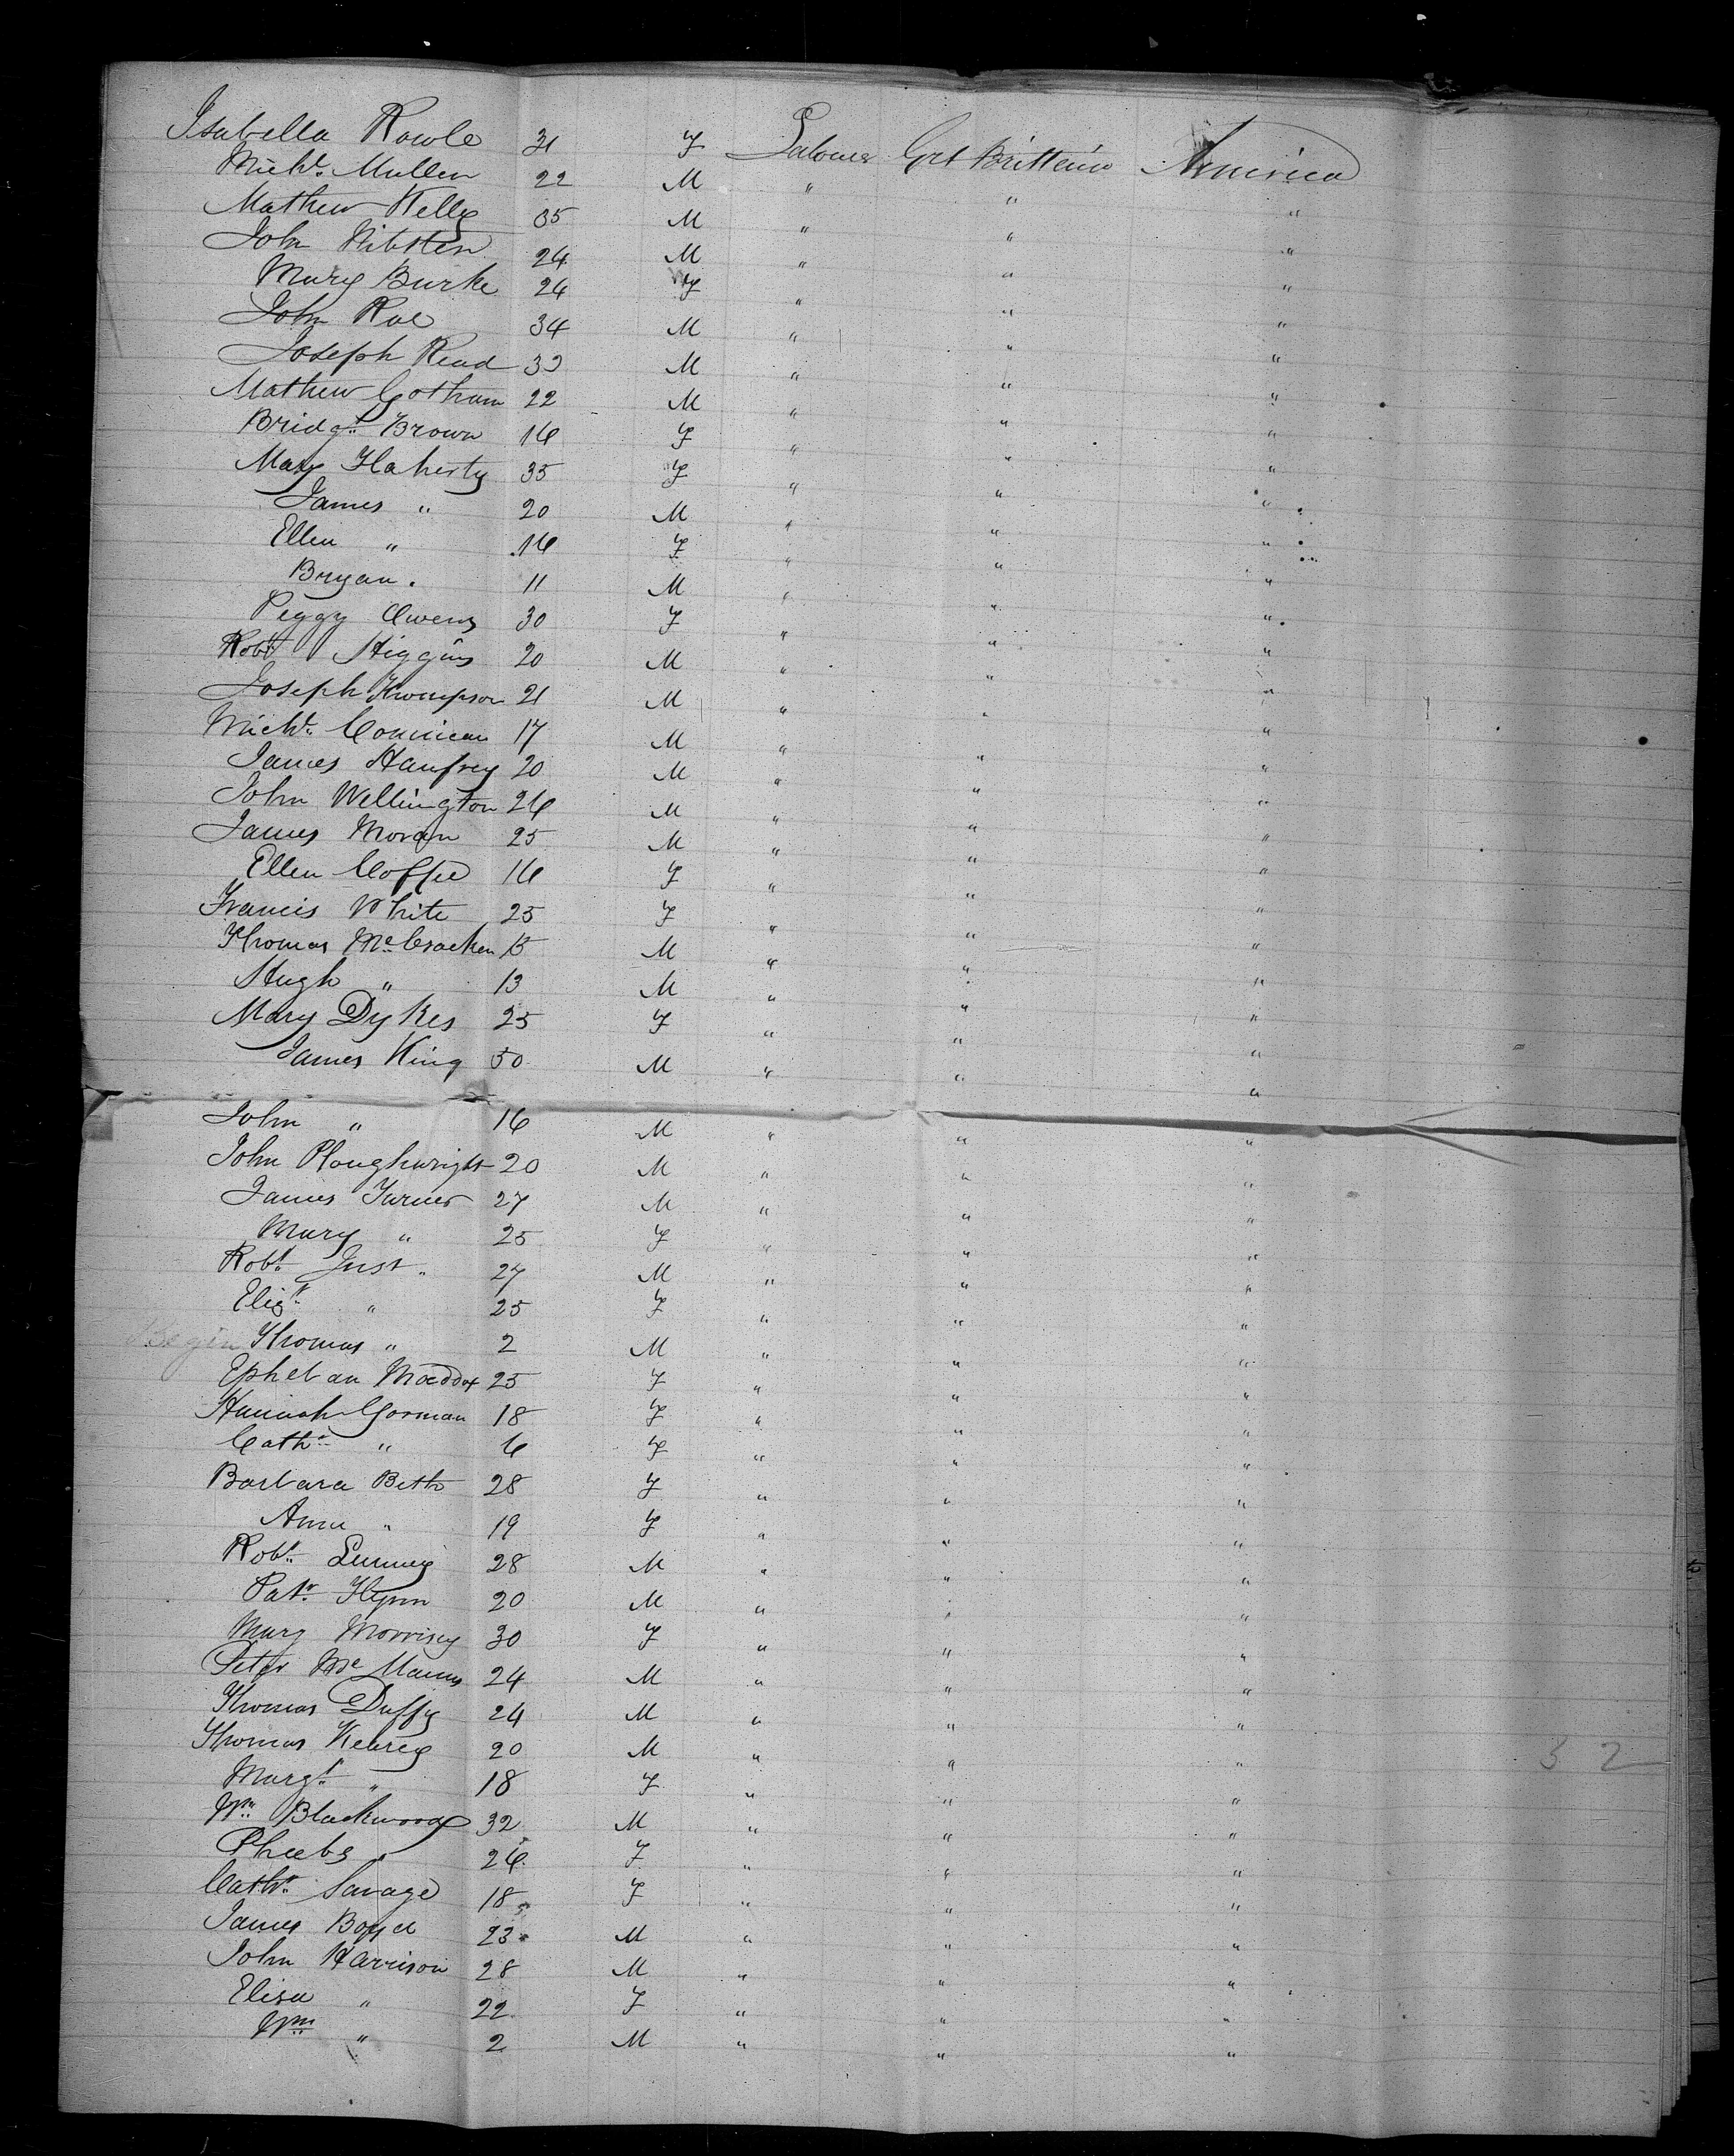 Isabella Rowle 31 F Laborer Grt Brittain America
Michl. Mullen 22 M " " "
Mathew Kelly 35 M " " "
John 24 M " " "
Mary Burke 24 F " " "
John Roe 34 M " " "
Joseph Read M " " "
Mathew Gotham 22 M " " "
Bridgt. Brown 16 F " " "
Mary Flaherty 35 F " " "
James " 20 M " " "
Ellen " 16 F " " "
Bryan . 11 M " " "
Peggy Owens 30 F " " "
Robt Higgins 20 M " " "
Joseph Thompson 21 M " " "
Michl. 17 M " " "
James Hanfrey 20 M " " "
John Wellington 26 M " " "
James Moran 25 M " " "
Ellen Coffee 16 F " " "
Francis White 25 F " " "
Thomas McCracken 15 M " " "
Hugh " 13 M " " "
Mary Dykes 25 F " " "
James King 50 M " " "
John " 16 M " " "
John Ploughwright 20 M " " "
James Turner 27 M " " "
Mary " 25 F " " "
Robt. Just " 27 M " " "
Elizt. " 25 F " " "
Begin Thomas " 2 M " " "
Maddox 25 F " " "
Hannah Gorman 18 F " " "
Cathn. " 6 F " " "
Barbara Beth 28 F " " "
Ann " 19 F " " "
Robt. 28 M " " "
Patk. Flynn 20 M " " "
Mary Morrisey 30 F " " "
Peter McManus 24 M " " "
Thomas Duffy 24 M " " "
Thomas 20 M " " "
Margt. " 18 F " " "
Wm. Blackwood 32 M " " "
Pheebe " 26 F " " "
Cathn. Savage 18 F " " "
James Boyd 23 M " " "
John Harrison 28 M " " "
Elisa " 22 F " " "
Wm " 2 M " " "
52